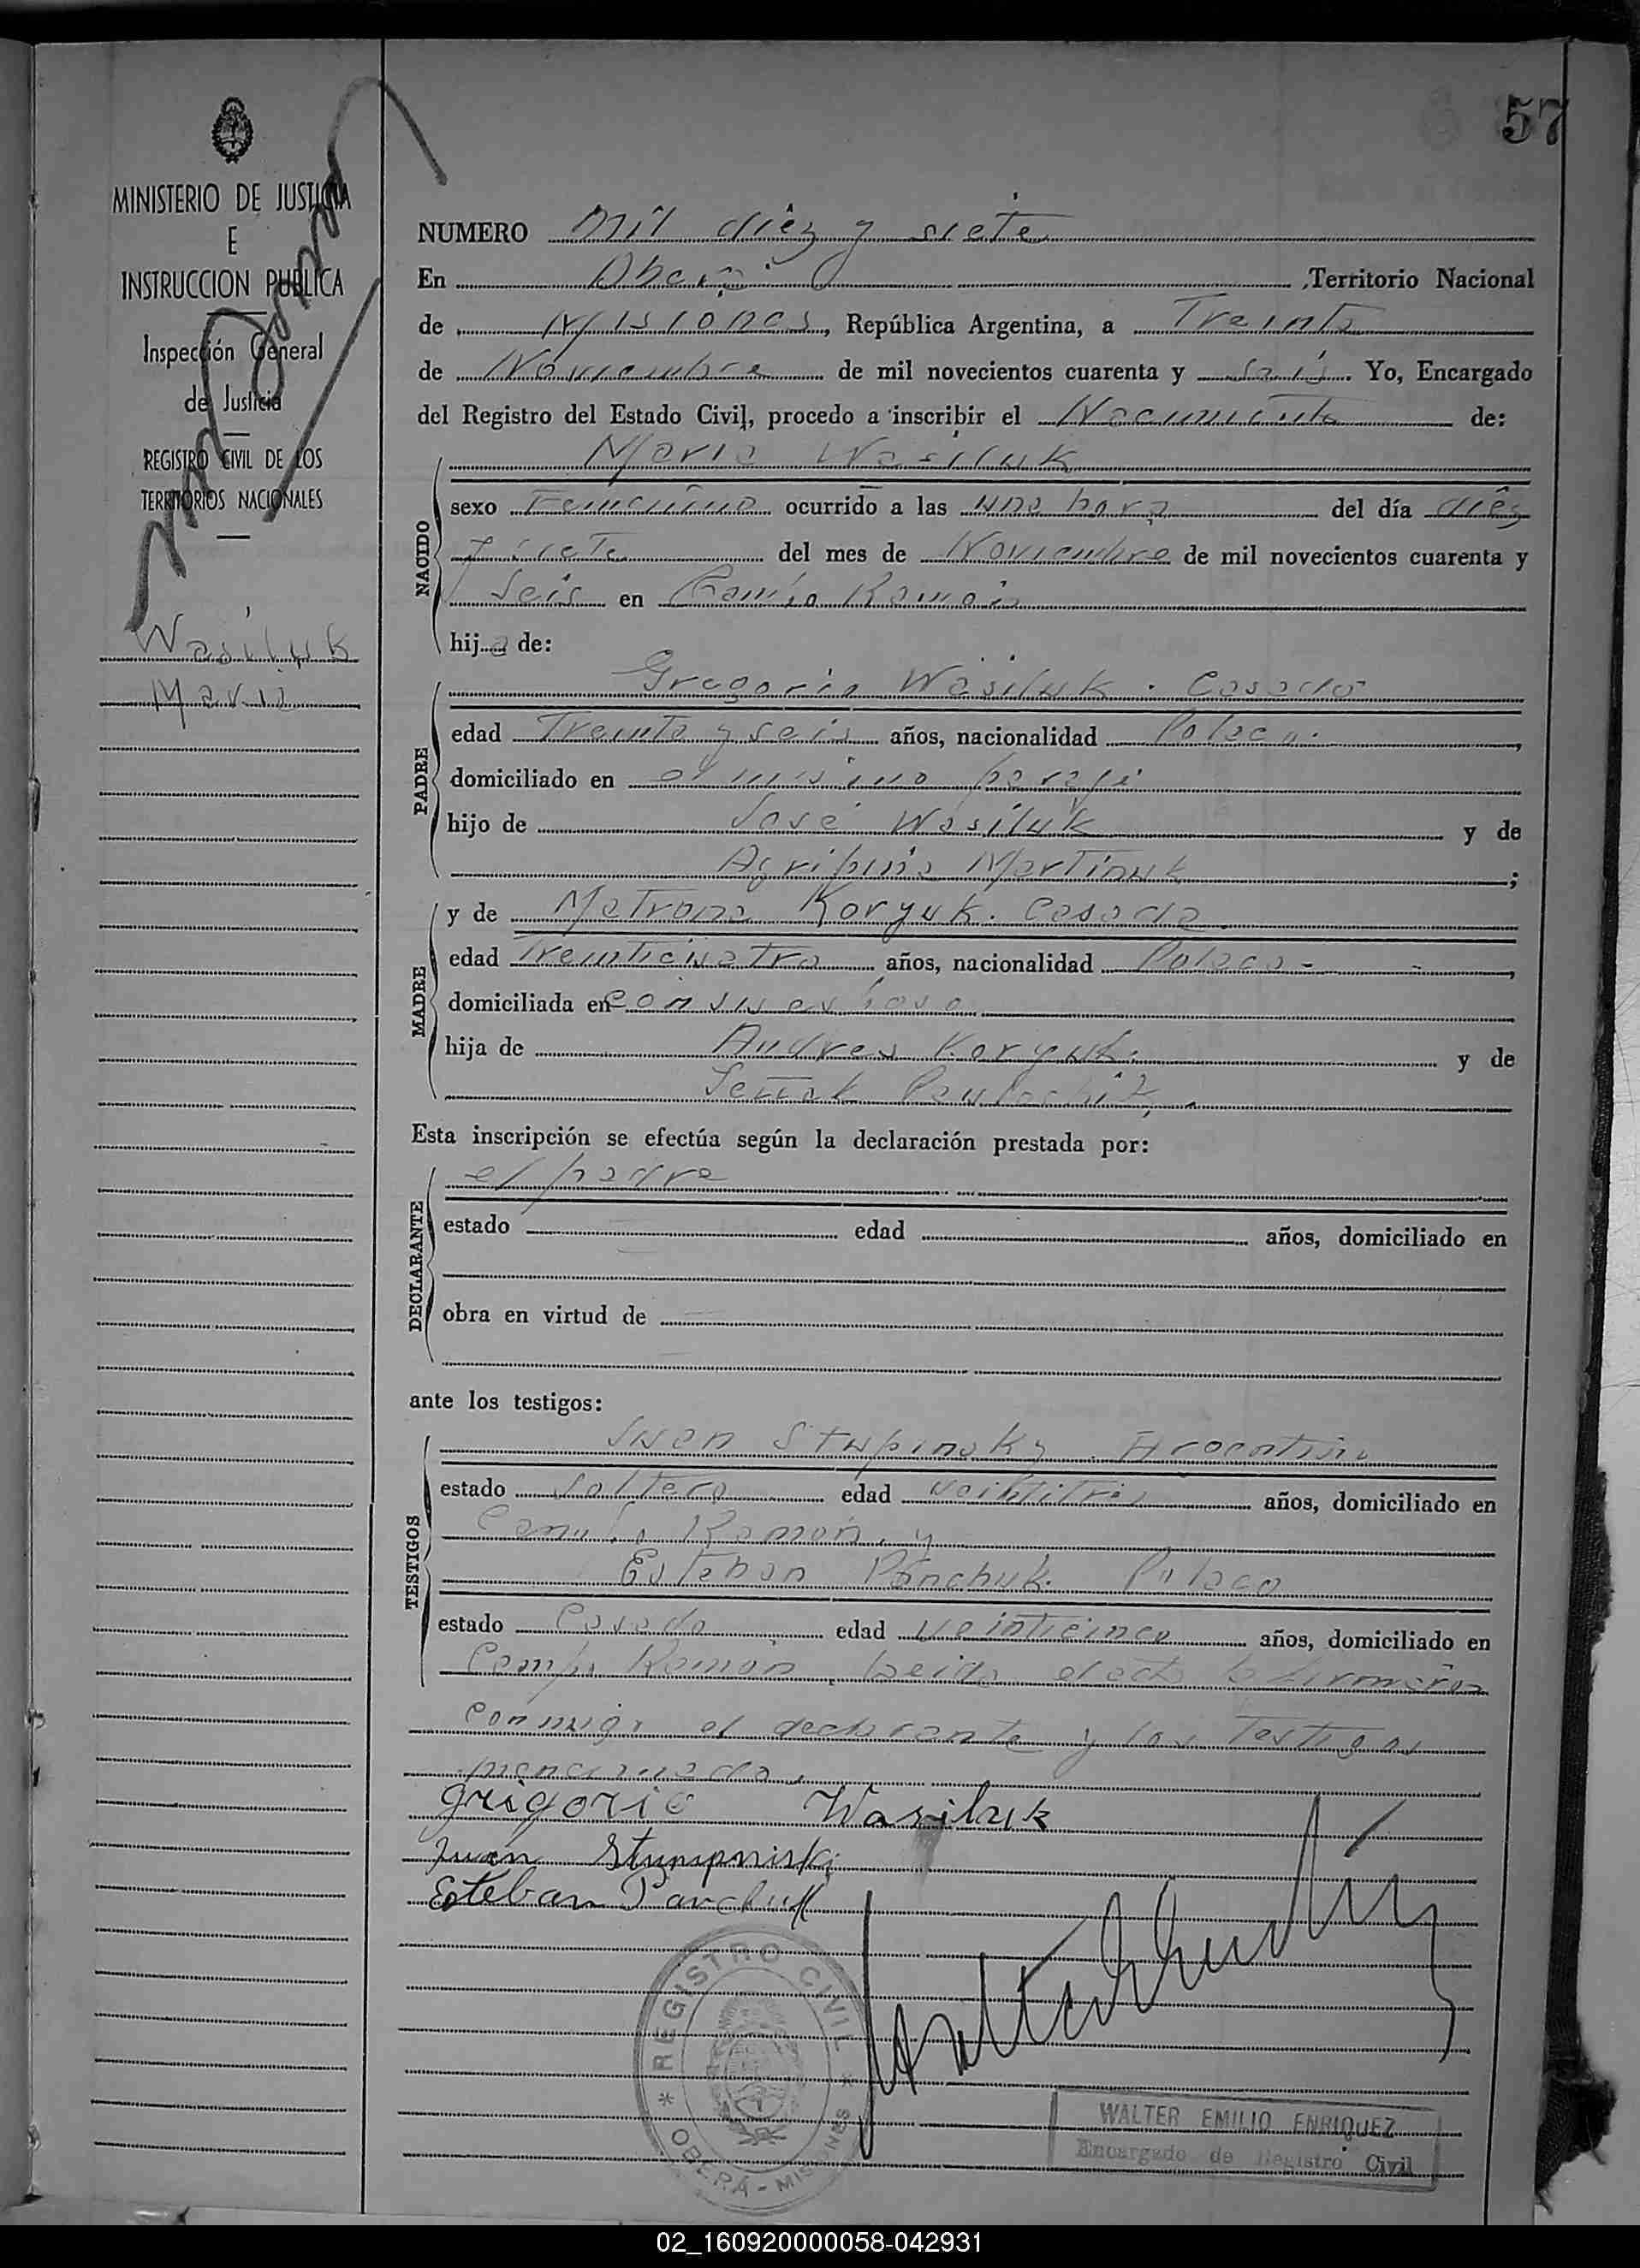 57
MINISTERIO DE JUSTICIA
E
INSTRUCCION PUBLICA
Inspección General
de Justicia
REGISTRO CIVIL DE LOS
TERRITORIOS NACIONALES
Wasiluk
Maria
NUMERO Mil diez y siete
En Oberá , Territorio Nacional
de Misiones, República Argentina, a Treinta
de Noviembre de mil novecientos cuarenta y seis. Yo, Encargado
del Registro del Estado Civil, procedo a inscribir el Nacimiento de:
NACIDO
Maria Wasiluk
sexo Femenino ocurrido a las una hora del día diez
y siete del mes de Noviembre de mil novecientos cuarenta y
Seis en Campo Ramon
hija de:
PADRE
Gregorio Wasiluk. Casado
edad Treinta y seis años, nacionalidad Polaco.
domiciliado en el mismo paraje
hijo de José Wasiluk y de
Agripina Martinuk ;
MADRE
y de Matrona Koryuk. Casada
edad Treinticuatro años, nacionalidad Polaca -
domiciliada en con su esposo
hija de Andres Koryuk. y de
Esta inscripción se efectúa según la declaración prestada por:
DECLARANTE
el padre
estado edad años, domiciliado en
obra en virtud de
ante los testigos:
TESTIGOS
Juan Stupinsky. Argentino
estado Soltero edad veintitrés años, domiciliado en
Campo Ramon, y
Esteban Panchuk. Polaco
estado Casado edad veinticinco años, domiciliado en
Campo Ramon, Leida el acta la firmaron
conmigo el declarante y los Testigos
mencionados.
Grigorio Wasiluk
Juan
Esteban Panchuk
REGISTRO CIVIL
* OBERÁ - MISIONES *
WALTER EMILIO ENRIQUEZ
Encargado de Registro Civil
02_160920000058-042931